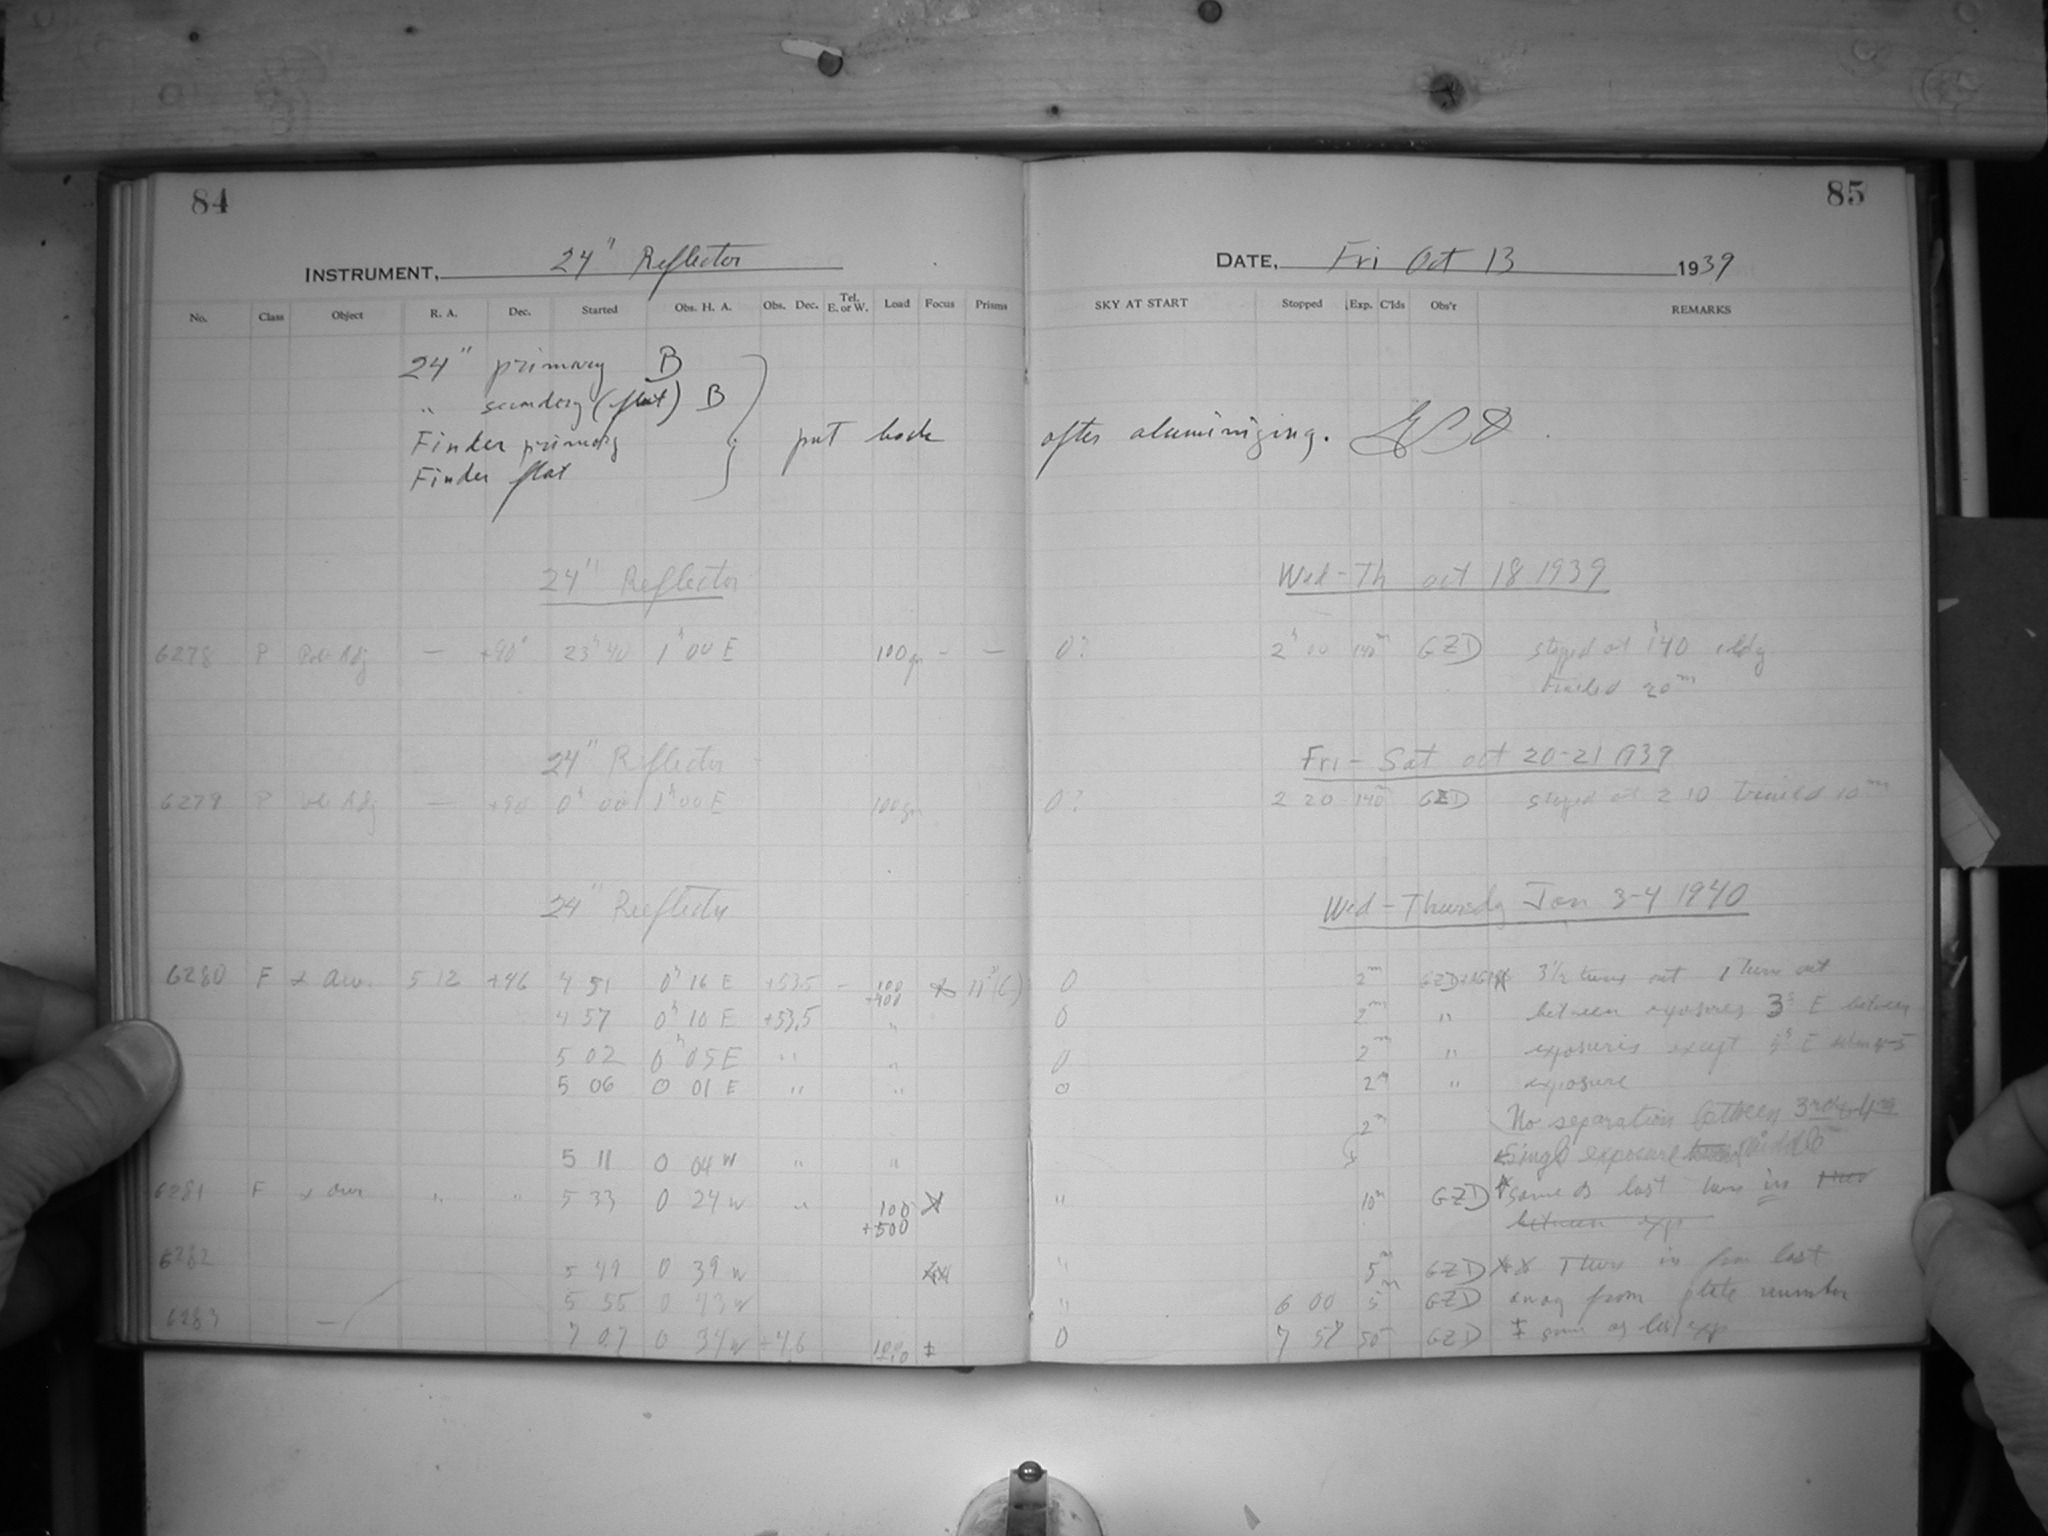 84
85
INSTRUMENT, 24" Reflector
DATE, Fri Oct 13 1939
No. Class Object R. A. Dec. Started Obs. H. A. Obs. Dec. Tel. E. or W. Load Focus Prisms SKY AT START Stopped Exp. C'lds Obs'r REMARKS
24" primary B
" secondary (flat) B
Finder primary put back after aluminizing. GZD
Finder flat
24" Reflector Wed - Th Oct 18 1939
6278 P Pole Adj — +90° 23h 40 1h 00 E 100 gr - — 0? 2h 00 140m GZD stopped at 1h40
trailed 20m
24" Reflector Fri - Sat Oct 20-21 1939
6279 P Pole Adj — +90 0h 00 1h 00 E 100 gr 0? 2 20 140m GZD stopped at 2 10 trailed 10m
24" Reflector Wed - Thursday Jan 3-4 1940
6280 F α Aur. 5 12 +46 4 51 0h 16 E +53.5 - 100 +400 0 2m 3 1/2 turns out 1 turn out
4 57 0h 10 E +53.5 " 0 2m " between exposures 3s E between
5 02 0h 05 E " " 0 2m " exposures except
5 06 0 01 E " " 0 2m " exposure
2m No separation between 3rd
5 11 0 04 W " " Single exposure
6281 F α Aur " " 5 33 0 24 W " 100 +500 * " 10m GZD * same as last turn in
between exp
6282 5 49 0 39 W ** " 5m GZD ** 1 turn in from last
5 55 0 43 W " 6 00 5m GZD away from plate number
6283 — 7 07 0 34 W +46 100 ‡ 0 7 57 50m GZD ‡ same as last exp